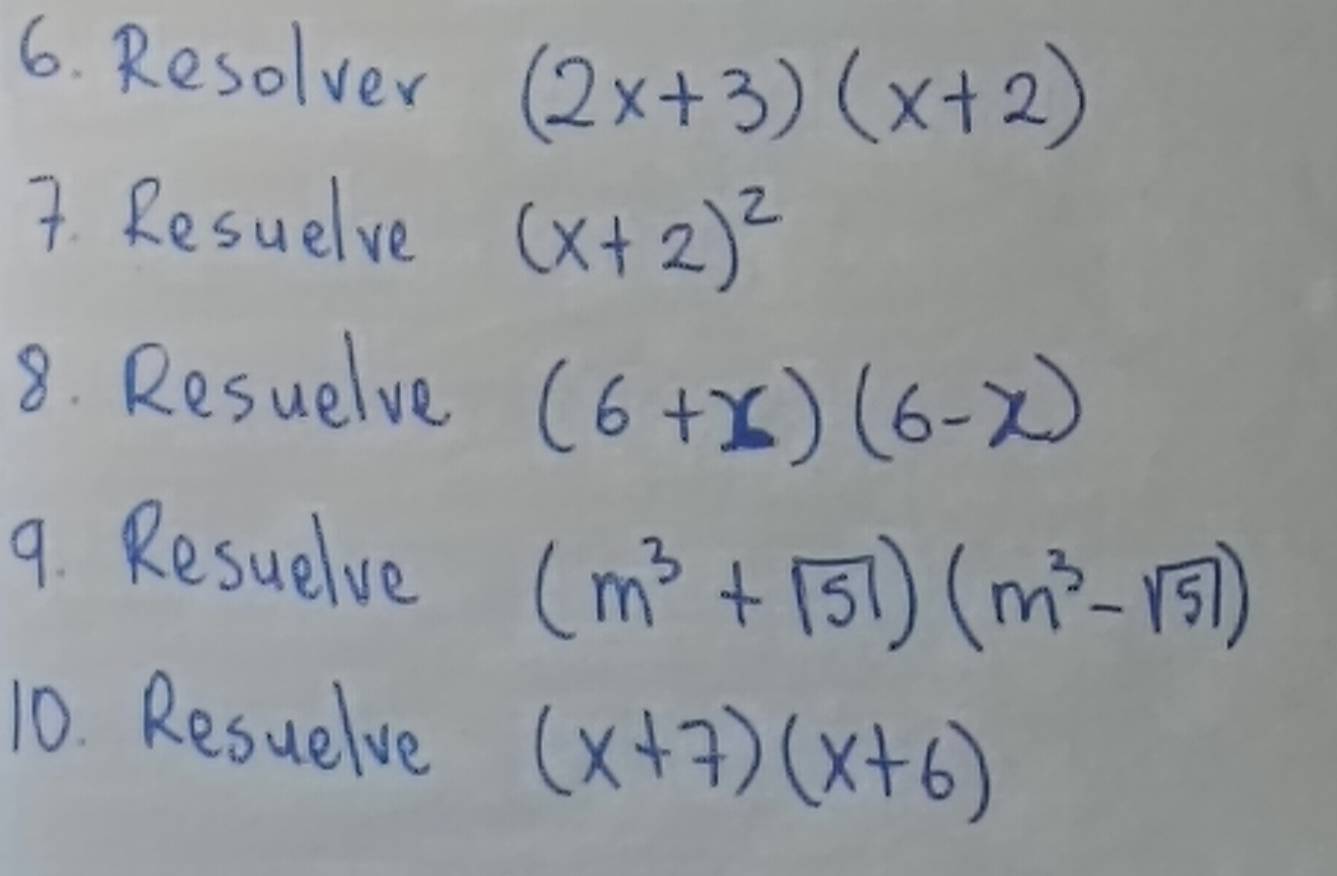 6. Resolver (2x+3)(x+2)
7. Resuelve (x+2)²
8. Resuelve (6+x)(6-x)
9. Resuelve (m³+√5)(m³-√5)
10. Resuelve (x+7)(x+6)